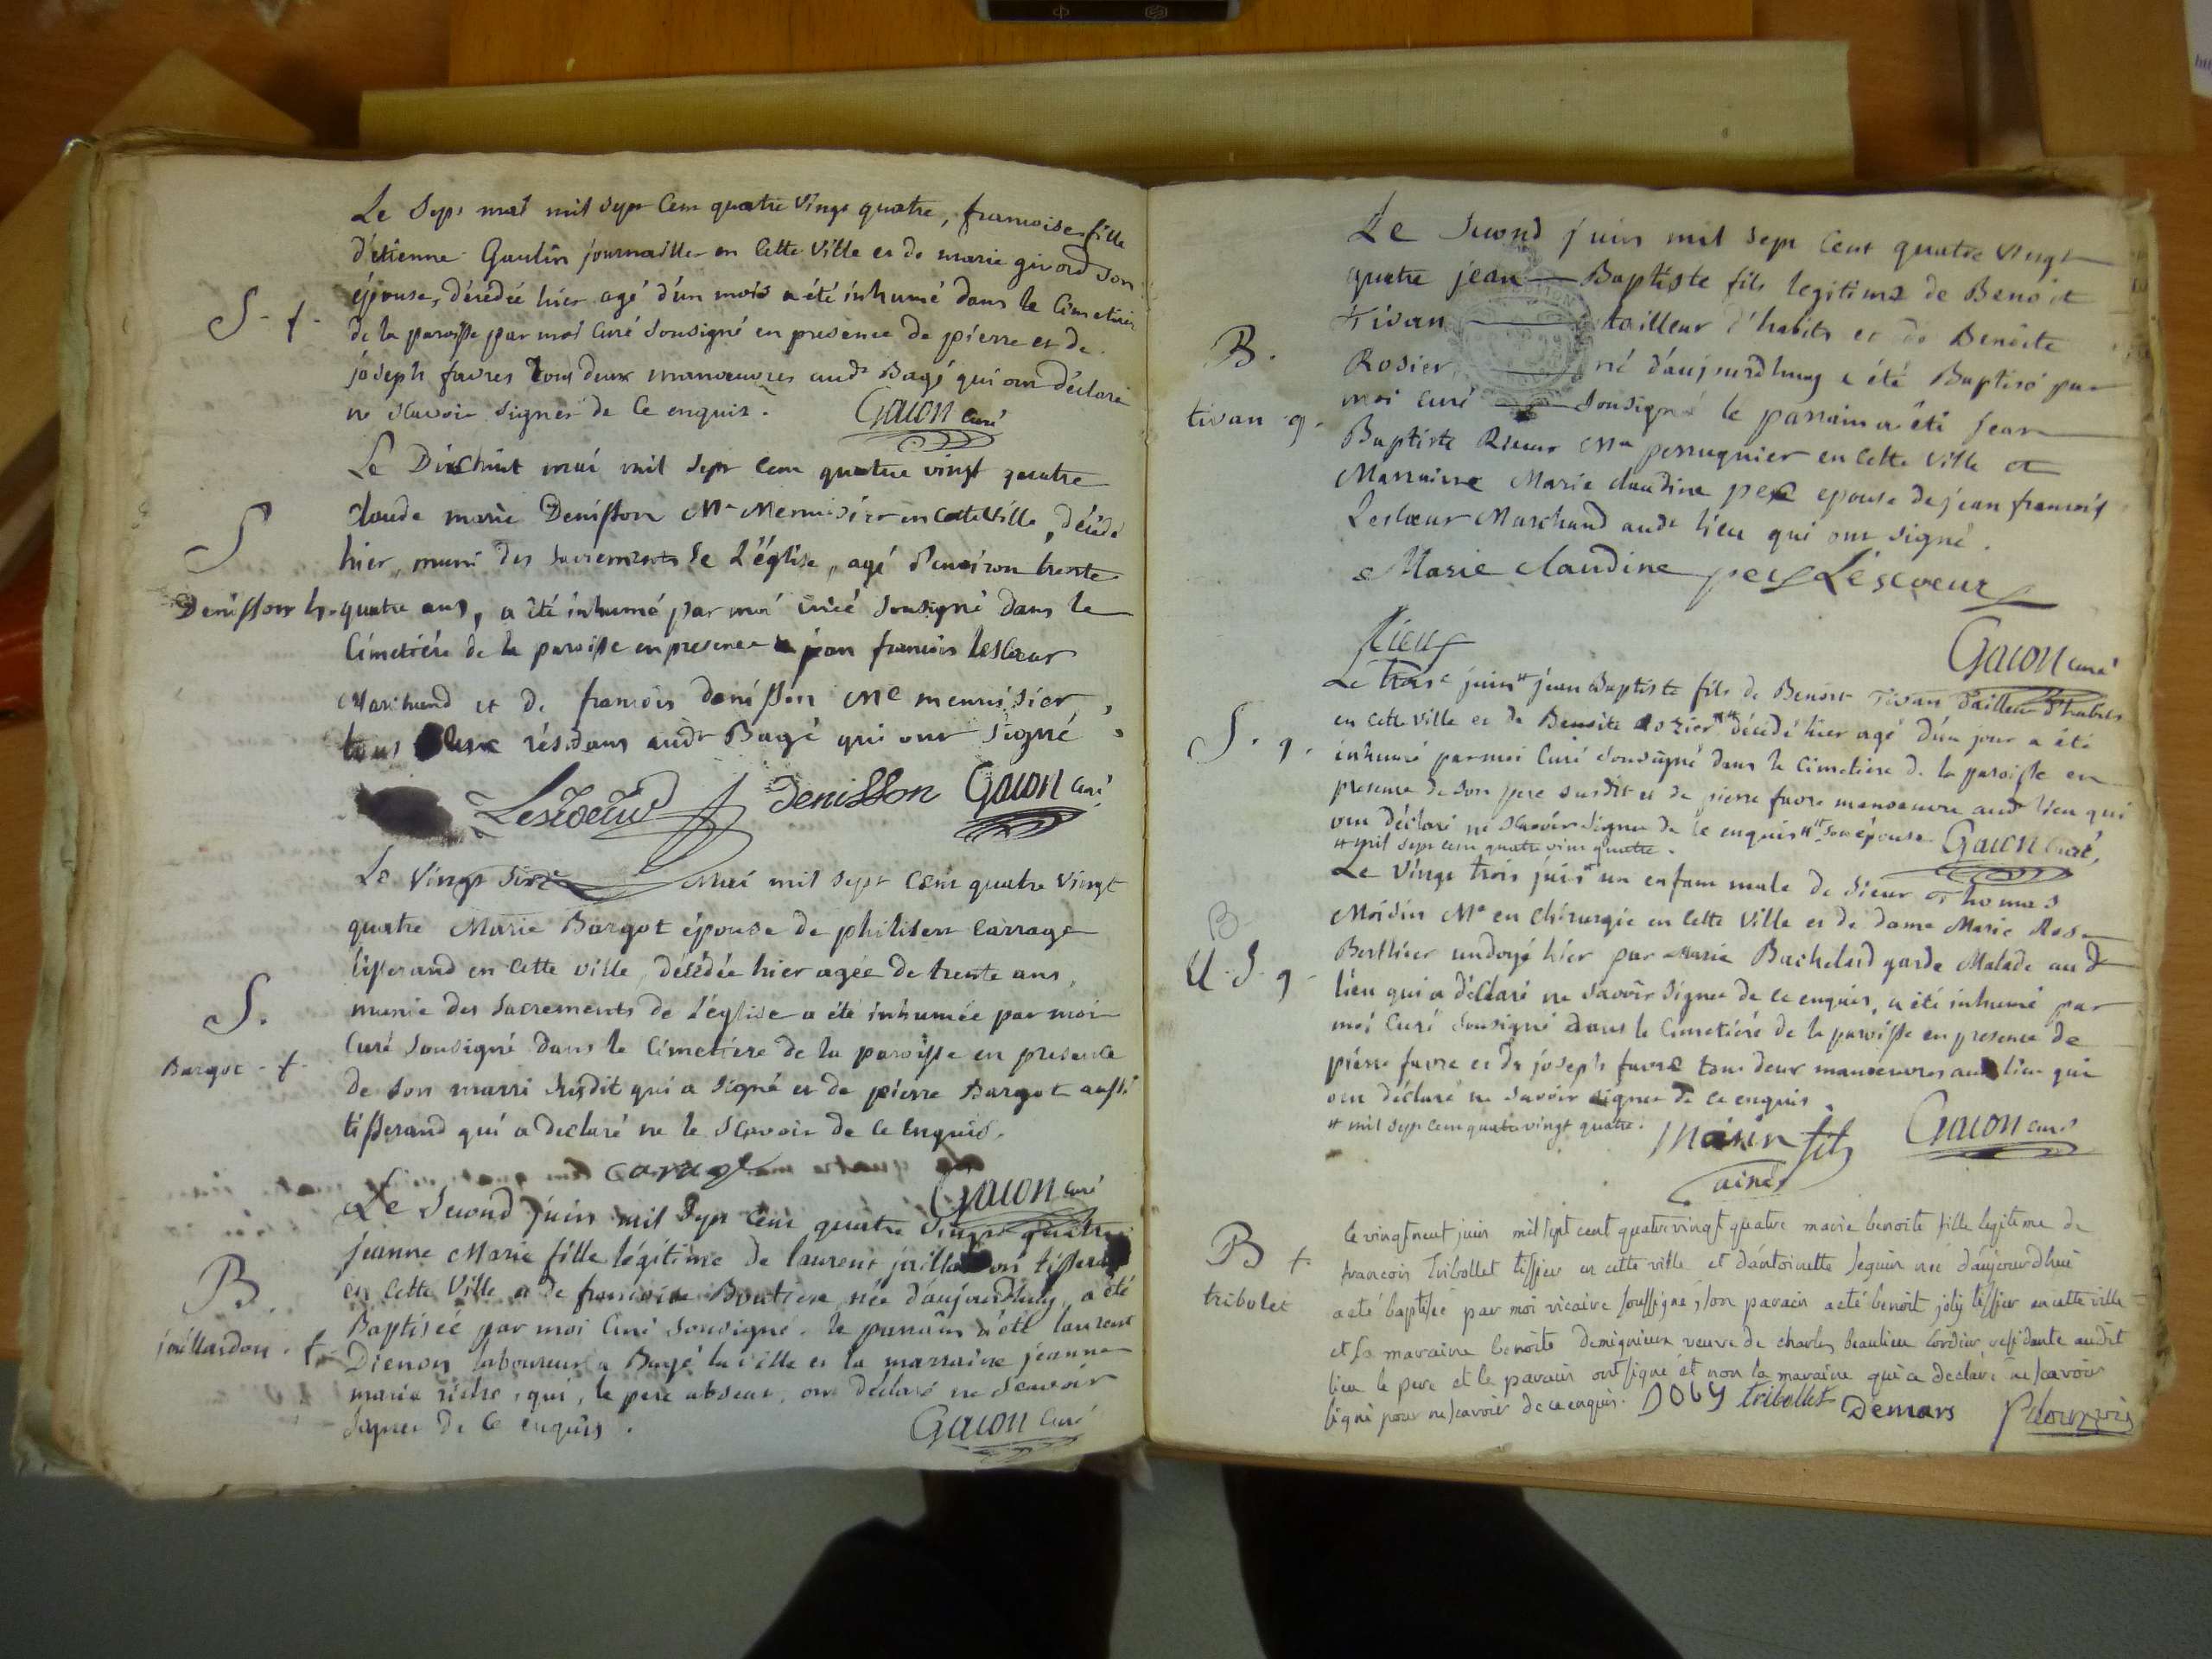 Le Sept mai mil Sept Cem quatre Vingt quatre, francoise fille
d'étienne Gaulin journaillier en Cette Ville et de marie givord Son
épouse, décédée hier agé d'un mois a été inhumé dans le Cimetière
S - f -
de la paroisse par moi Curé Sousigné en presence de pierre et de
joseph favres tous deux manoeuvres audt Bagé qui ont déclaré
ne Scavoir Signer de Ce enquis.
Gacon Curé
Le Dixhuit mai mil Sept Cem quatre vingt quatre
Claude marie Denisson Me Menuisier en Cette Ville, décédé
S
hier, muni des Sacrements de L'église, agé d'environ trente
Denisson h. quatre ans, a été inhumé par moi curé Sousigné dans le
Cimetiére de la paroisse en presence jean francois Lescoeur
Marchand et de francois denisson Me menuisier,
tous résidans audt Bagé qui ont Signé.
Lescoeur Denisson Gacon Curé
Le Vingt Mai mil Sept Cent quatre Vingt
quatre Marie Bargot épouse de philibert Carrage
tisserand en Cette ville, décédée hier agée de trente ans,
S.
munie des Sacrements de L'église a été inhumée par moi
Curé Sousigné dans le Cimetiere de la paroisse en presence
Bargot - f -
de Son marri Susdit qui a Signé et de pierre Bargot aussi
tisserand qui a declaré ne le Scavoir de Ce Enquis.
Carage
Gacon Curé
Le Second juin mil Sept Cent quatre Vingt quatre
jeanne Marie fille légitime de laurent jaillardon tisserand
B
en Cette Ville et de francoise Boutiere née d'aujourdhuy, a été
Baptisée par moi Curé Sousigné. le parrain a été laurent
jaillardon - f -
Dienon laboureur a Bagé la ville et la marraine jeanne
marie qui, le pere absent, ont déclaré ne Scavoir
Signer de Ce enquis.
Gacon Curé
Le Second juin mil Sept Cent quatre Vingt
quatre jean Baptiste fils legitime de Benoit
Tivan tailleur d'habits et de Benoite
B.
Rosier né d'aujourdhuy a été Baptisé par
moi Curé Sousigné le parrain a été jean
tivan - g -
Baptiste Rieur Me perruquier en Cette Ville et
Marraine Marie Claudine pex epouse de jean francois
Lescoeur Marchand audt lieu qui ont Signé.
Marie Claudine pex Lescoeur
Rieur
Gacon curé
Le trois juin # jean Baptiste fils de Benoit Tivan Tailleur d'habits
en Cette Ville et de Benoite Rozier ## décédé hier agé d'un jour a été
S. g.
inhumé par moi Curé Sousigné dans le Cimetiere de la paroisse en
presence de Son pere Susdit et de pierre favre manoeuvre audt lieu qui
ont déclaré ne Scavoir Signer de Ce enquis ## Son épouse Gacon Curé
# mil Sept Cem quatre vint quatre.
Le Vingt trois juin # un enfant male de Sieur Thomas
B
Moisin Me en Chirurgie en Cette Ville et de dame Marie Rose
U. S. g -
Berthier undoyé hier par Marie Bachelard garde Malade aud
lieu qui a déclaré ne Savoir Signer de Ce enquis, a été inhumé par
moi Curé Sousigné dans le Cimetiére de la paroisse en presence de
pierre favre et de joseph favre tous deux manoeuvres aud lieu qui
ont déclaré ne Savoir Signer de Ce enquis.
# mil Sept Cem quatre vingt quatre.
Moisin fils
ainé
Gacon Curé
le vingtneuf juin mil sept cent quatrevingt quatre marie benoite fille legitime de
B f
francois Tribollet tissier en cette ville et d'antoinette Seguin née d'aujourd'hui
tribolet
a eté baptisée par moi vicaire soussigné, son parain a eté benoit joly tissier en cette ville
et sa maraine benoite Demignieux veuve de charles beaulieu Cordier residante audit
lieu le pere et le parain ont signé et non la maraine qui a declaré ne scavoir
signé pour ne scavoir de ce enquis. Joly tribollet Demars